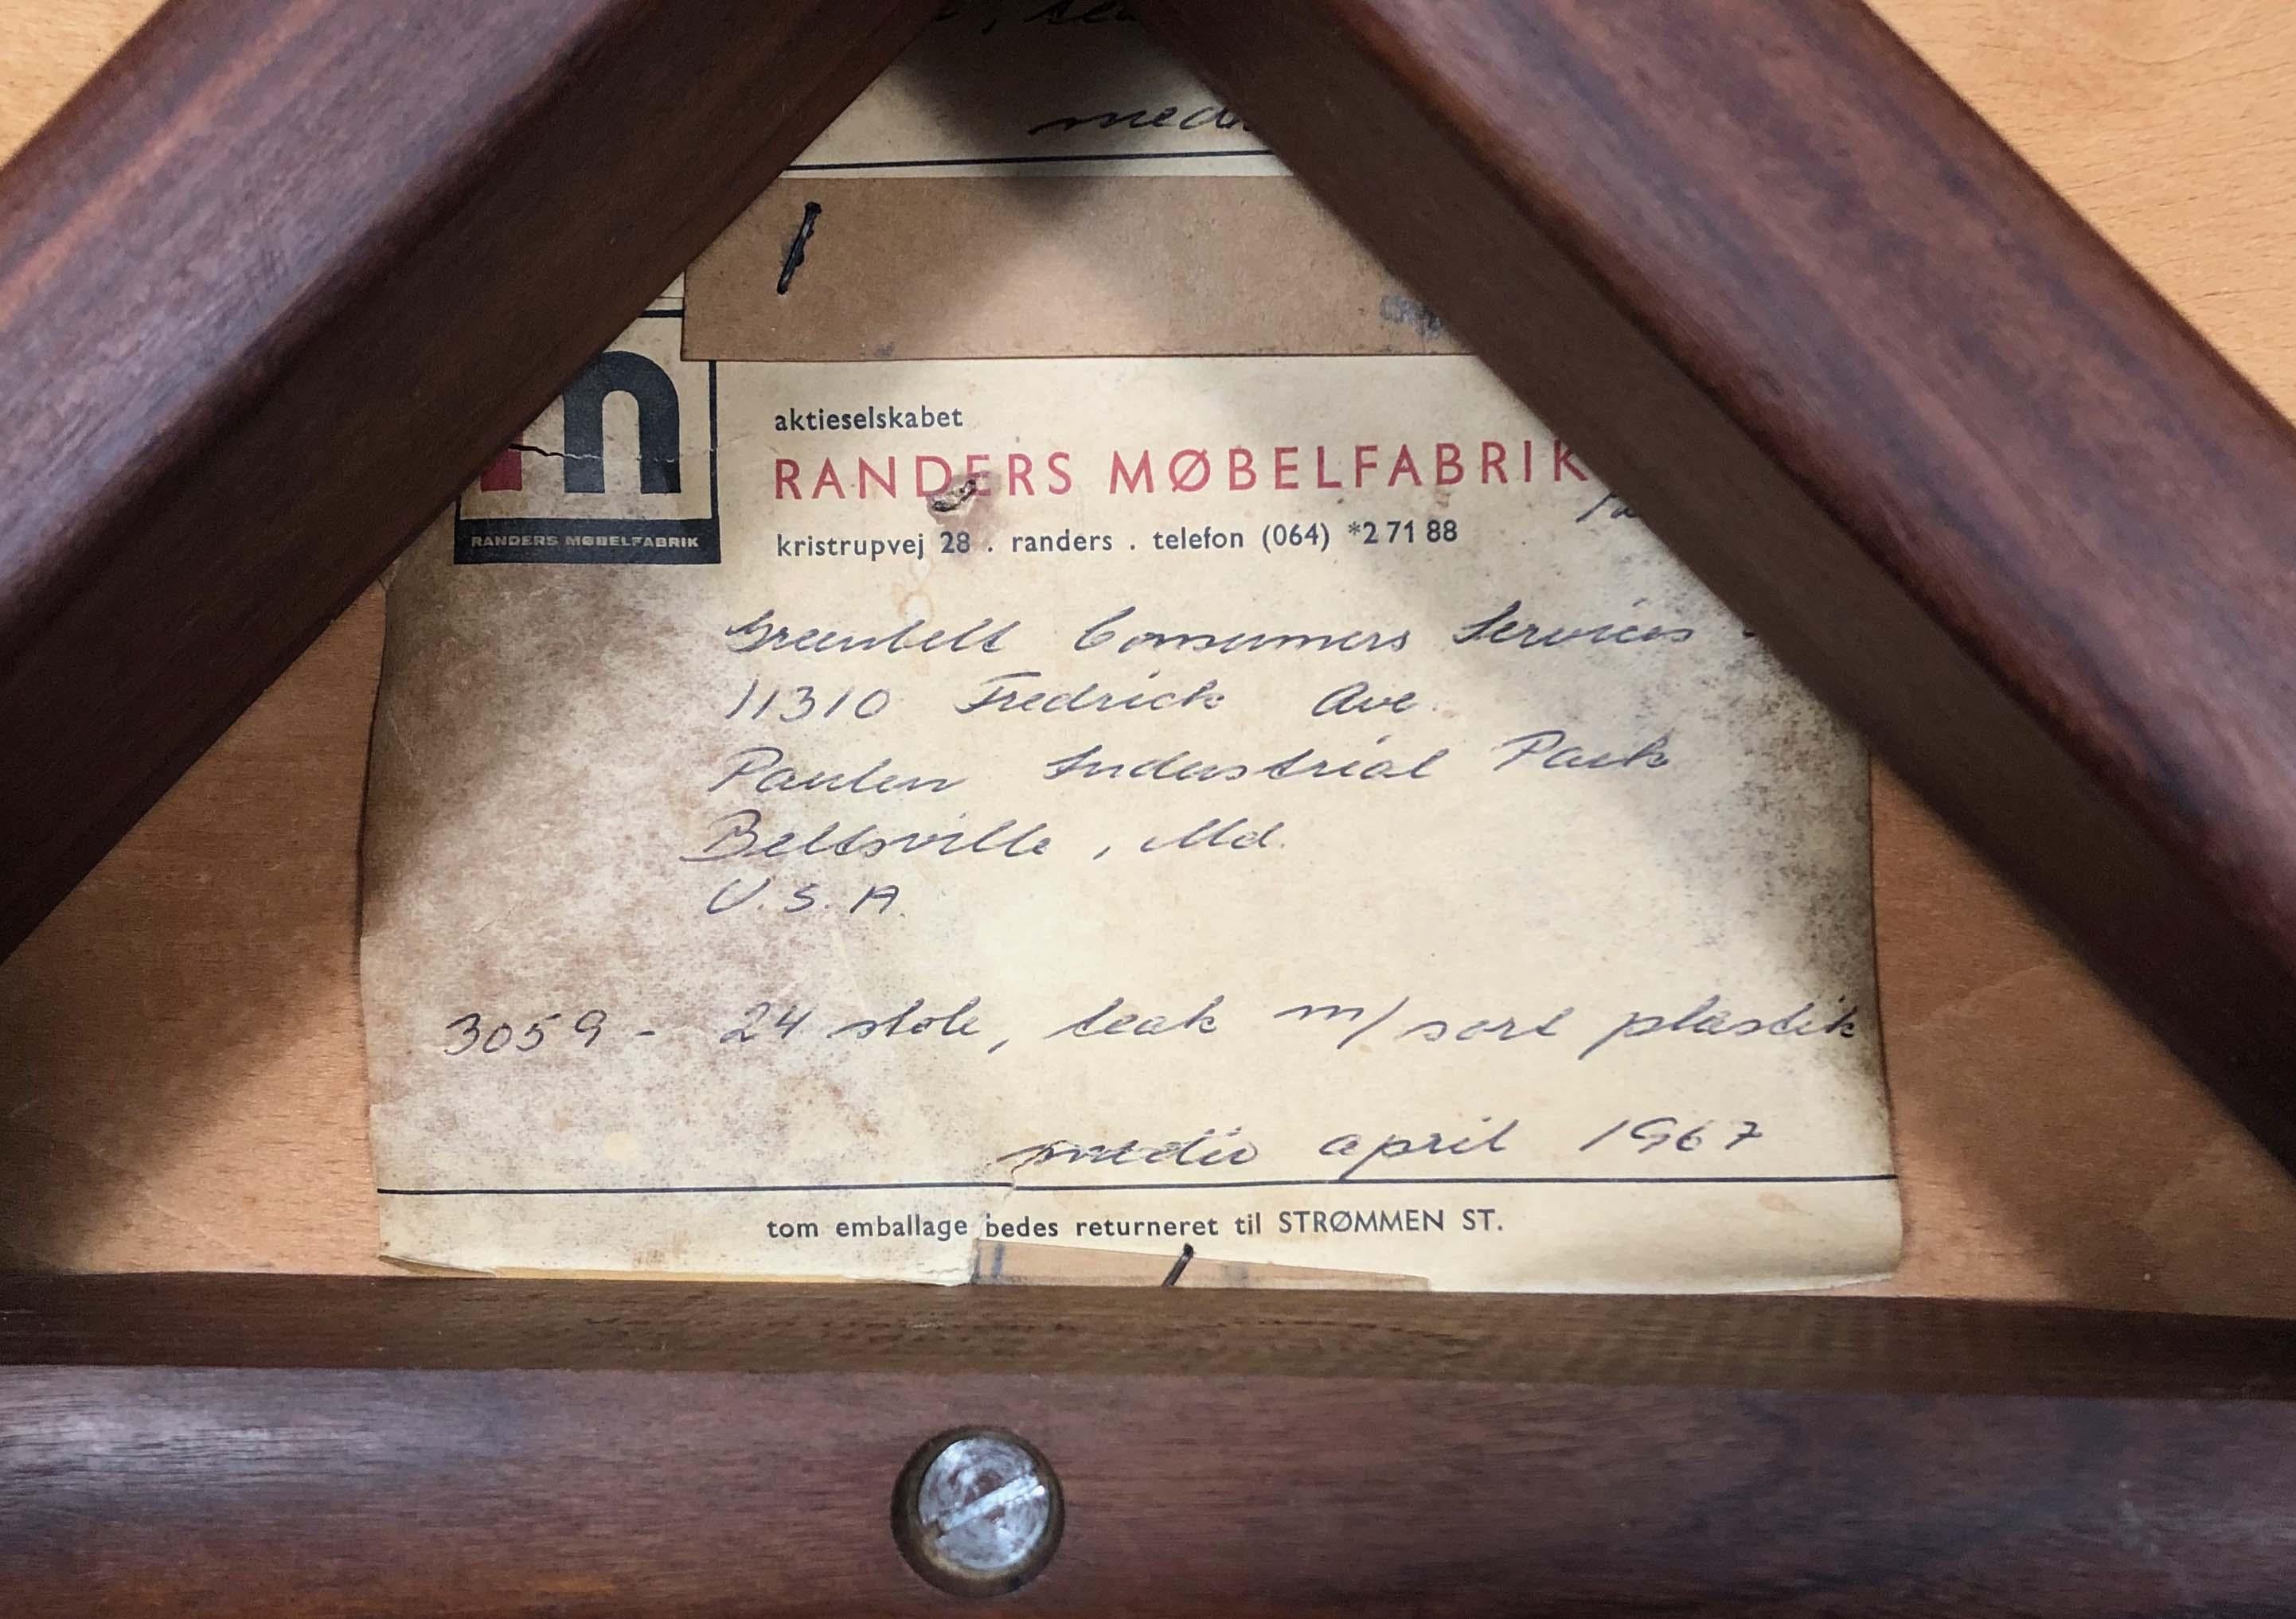 aktieselskabet
RANDERS MØBELFABRIK
kristrupvej 28 . randers . telefon (064) *2 71 88
RANDERS MØBELFABRIK
Greenbelt Consumers Services
11310 Fredrick Ave.
Paulen Industrial Park
Beltsville, Md.
U.S.A.
3059 - 24 stole, teak m/sort plastik
medio april 1967
tom emballage bedes returneret til STRØMMEN ST.